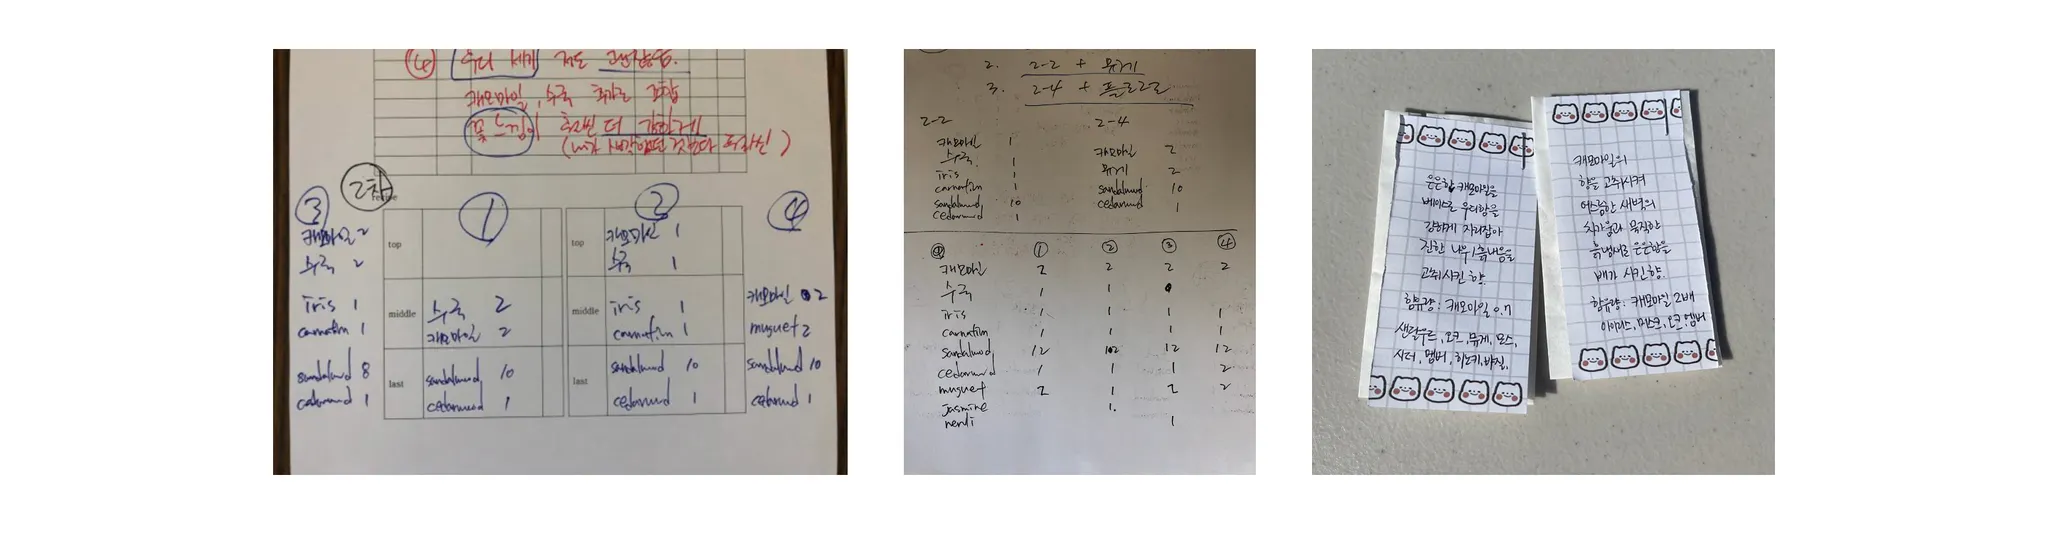 ④ 우디 세개 정도
캐모마일, 수국 추가로 조합
꽃 느낌이 훨씬 더 강하게
2차
recipe
③
캐모마일 2
수국 2
iris 1
carnation 1
sandalwood 8
cedarwood 1
①
top
middle
수국 2
캐모마일 2
last
sandalwood 10
cedarwood 1
②
top
캐모마일 1
수국 1
middle
iris 1
carnation 1
last
sandalwood 10
cedarwood 1
④
캐모마일 2
muguet 2
sandalwood 10
cedarwood 1
2. 2-2 + 뮤게
3. 2-4 + 플로럴
2-2
캐모마일 1
수국 1
iris 1
carnation 1
sandalwood 10
cedarwood 1
2-4
캐모마일 2
뮤게 2
sandalwood 10
cedarwood 1
① ② ③ ④
캐모마일 2 2 2 2
수국 1 1
iris 1 1 1 1
carnation 1 1 1 1
sandalwood 12 12 12 12
cedarwood 1 1 1 2
muguet 2 1 2 2
Jasmine 1
neroli 1
은은한 캐모마일을
베이스로 우디향을
강하게 자리잡아
진한 나무/흙내음을
고취시킨 향.
함유량: 캐모마일 0.7
샌달우드, 오크, 뮤게, 모스,
시더, 엠버, 히노키, 바질,
캐모마일의
향을 고취시켜
어스름한 새벽의
차가움과 묵직한
흙냄새로 은은함을
배가 시킨 향.
함유량: 캐모마일 2배
아이리스, 머스크, 오크, 엠버